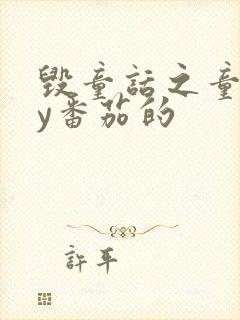 毁童话之童
y番茄的
許平